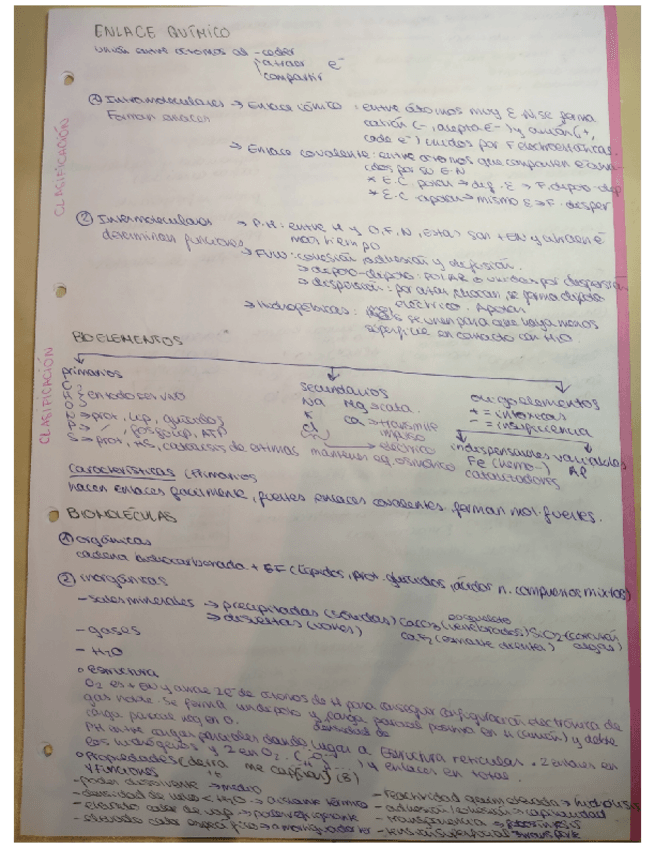 ENLACE QUÍMICO
unión entre átomos al - ceder
atraer e⁻
compartir
CLASIFICACIÓN
① Intramoleculares → Enlace iónico : entre átomos muy E.N. se forma
Forman enlacen catión (-, acepta e-) y anión (+,
cede e⁻) unidos por F electrostáticas.
→ Enlace covalente : entre átomos que comparten e⁻
por su E.N
* E.C. polar → dif. E → F. dipolo-dip
* E.C. apolar → mismo E → F. disper
② Intermoleculares → P.H : entre H y O, F, N, estas son + EN y atraen e⁻
determinan funciones más tiempo
→ FVW : cohesión, adhesión y difusión.
→ dipolo-dipolo : POLAR unidas por dispersión
→ dispersión : por azar chocan, se forma dipolo
eléctrico. Apolar
→ Hidrofóbicas : se unen para que haya menos
superficie en contacto con H₂O.
BIOELEMENTOS
CLASIFICACIÓN
primarios
secundarios
oligoelementos
C
H
O } en todo ser vivo
N → prot, lip, glúcidos
P → fosfolip, ATP
S → prot, HS, catálisis de enzimas
Na Mg → cata.
K Ca → transmite
Cl impulso
eléctrico
mantener eq. osmótico
+ = intoxicas
- = insuficiencia
indispensables variables
Fe (hemo-) Al
catalizadores
Características (Primarios
hacen enlaces fácilmente, fuertes enlaces covalentes, forman mol. fuertes.
BIOMOLÉCULAS
① orgánicas
cadena hidrocarbonada + GF (lípidos, prot, glúcidos, ácidos n. compuestos mixtos)
② inorgánicas
- sales minerales → precipitadas (sólidas) CaCO₃ (vertebrados) SiO₂ (
→ disueltas (iones) CaF₂ (esmalte dental) algas)
- gases
- H₂O
◦ Estructura
O₂ es + EN y atrae 2e⁻ de átomos de H para conseguir configuración electrónica de
gas noble. Se forma un dipolo y carga parcial positiva en H (catión) y doble
carga parcial neg en O. densidad de
PH entre cargas parciales dando lugar a Estructura reticular. 2 enlaces en
los hidrógenos y 2 en O₂. y enlaces en total.
◦ Propiedades (8)
y funciones
- poder disolvente → medio
- densidad de hielo < H₂O → aislante térmico
- elevado calor de vap → poder refrigerante
- elevado calor específico → amortiguador ter
- reactividad → hidrólisis
- adhesión cohesión → capilaridad
- transparencia → fotosíntesis
- tensión superficial → transporte